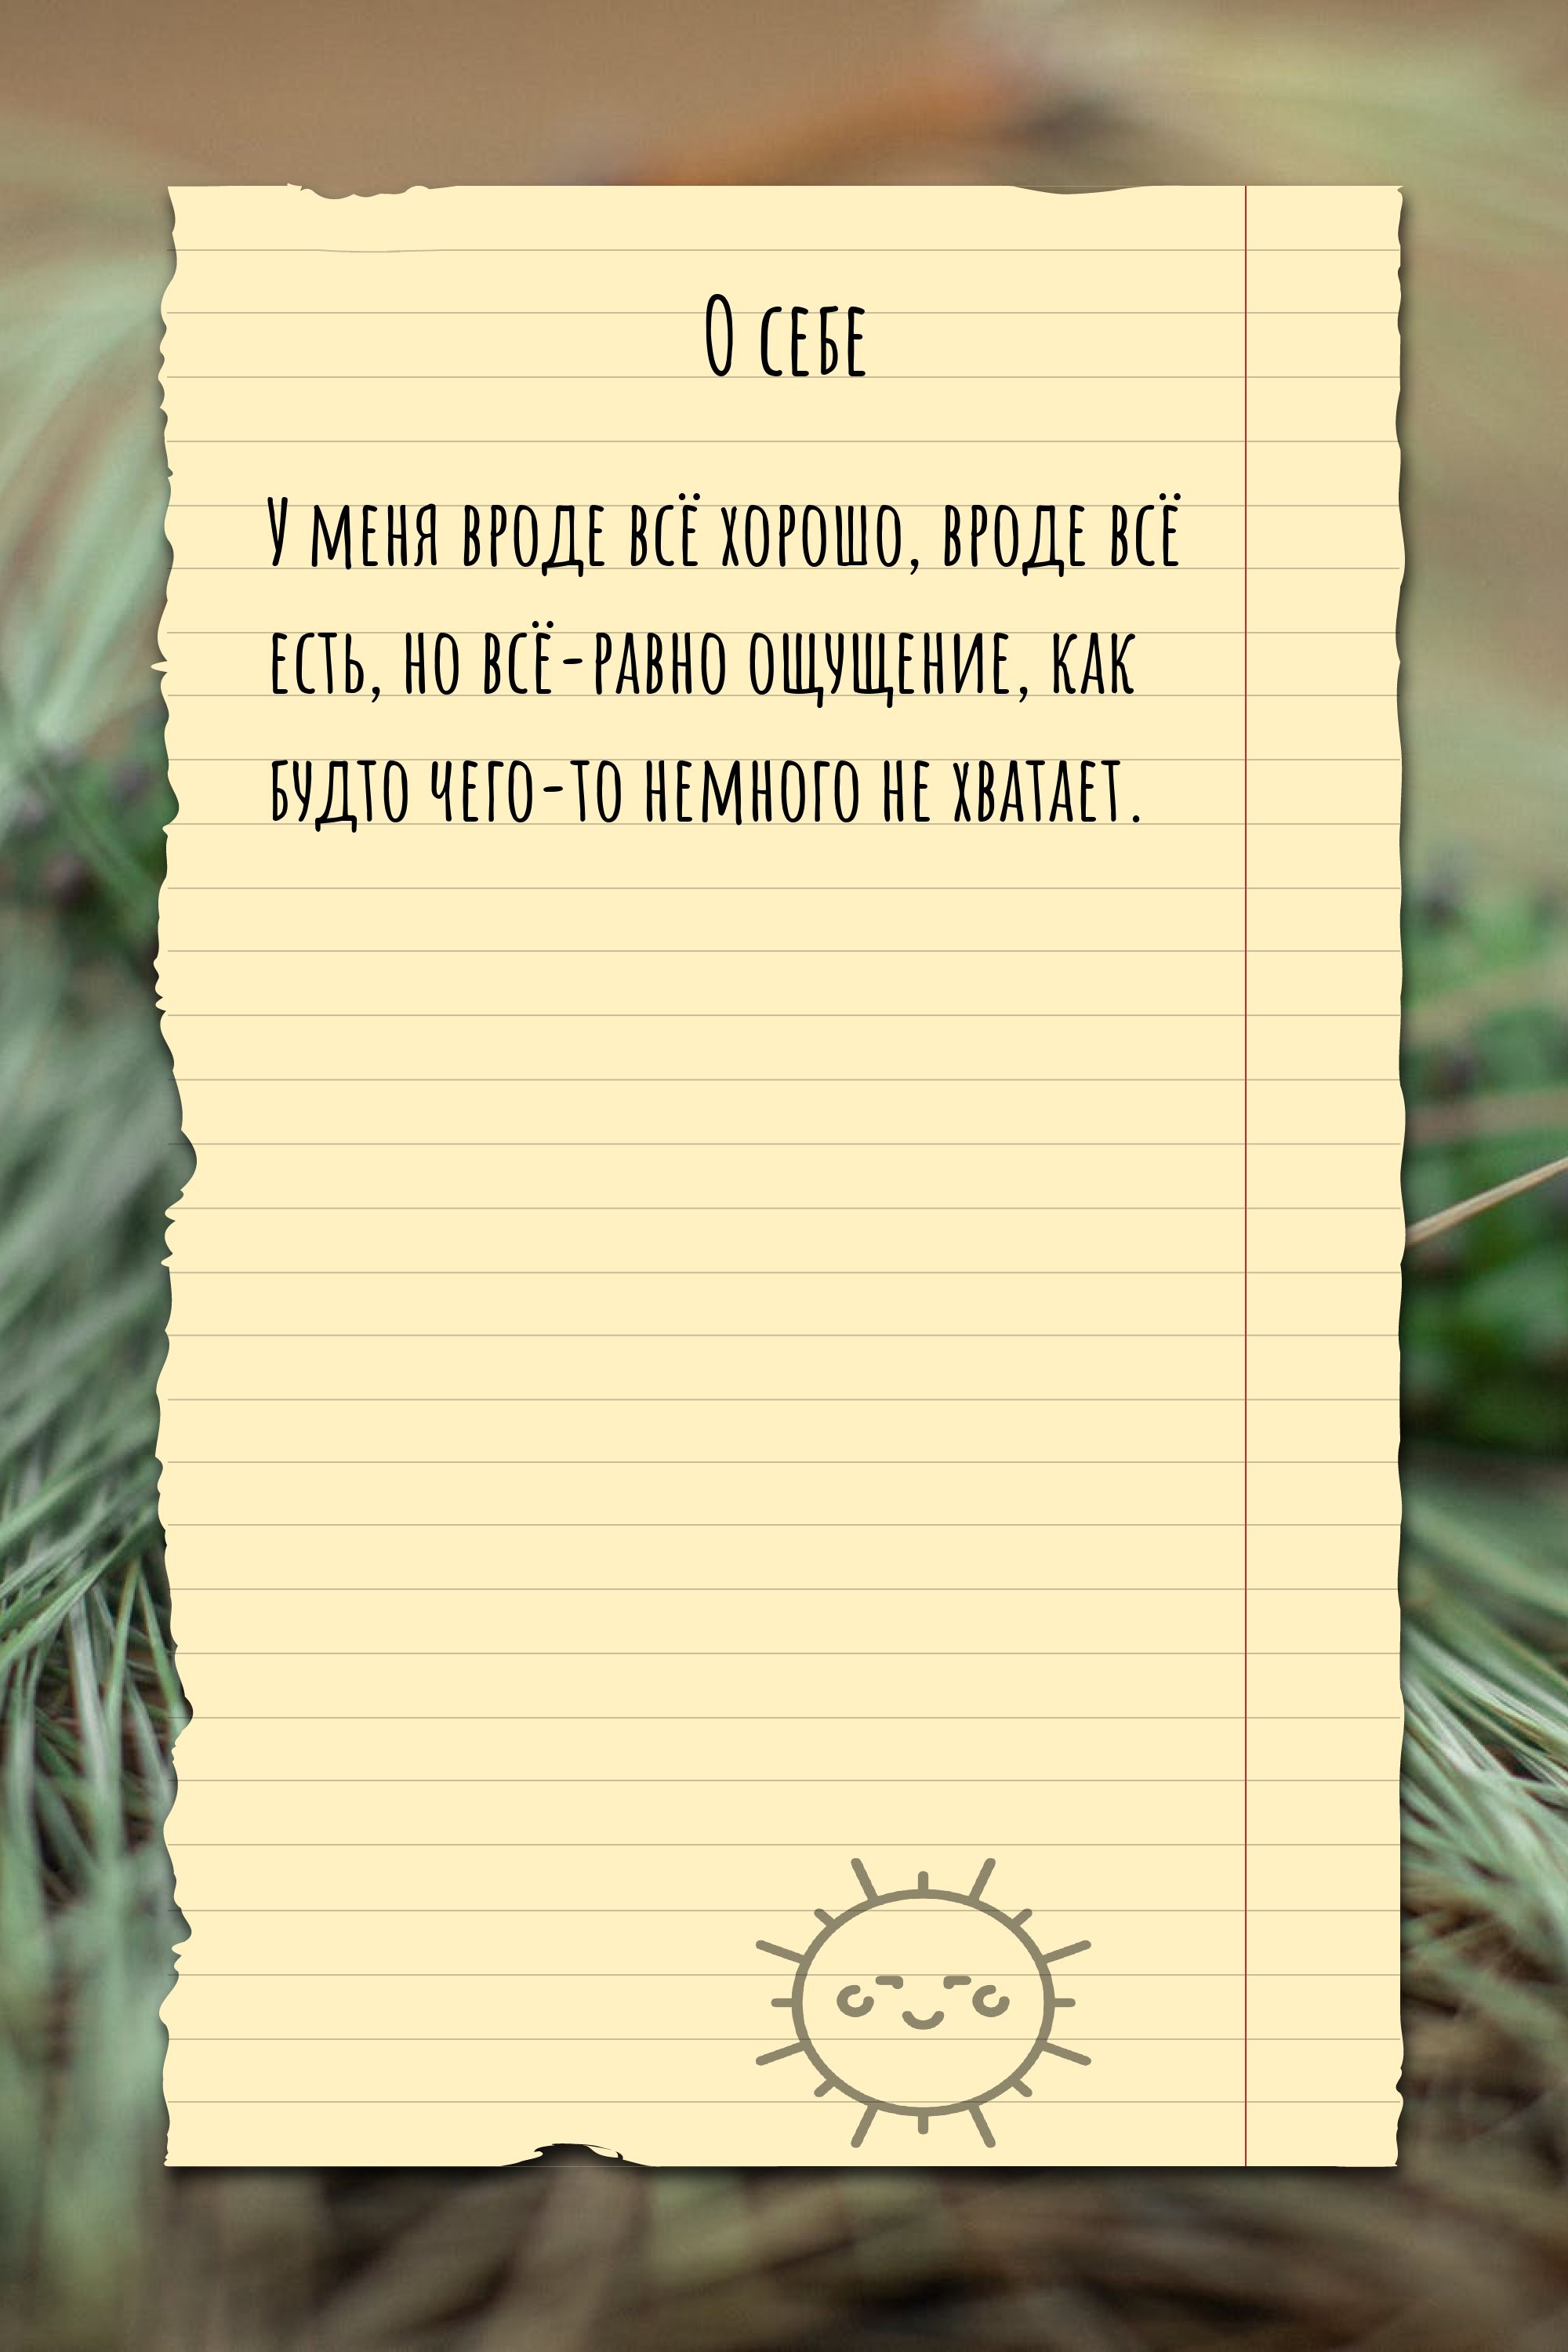 О себе
У меня вроде всё хорошо, вроде всё
есть, но всё-равно ощущение, как
будто чего-то немного не хватает.